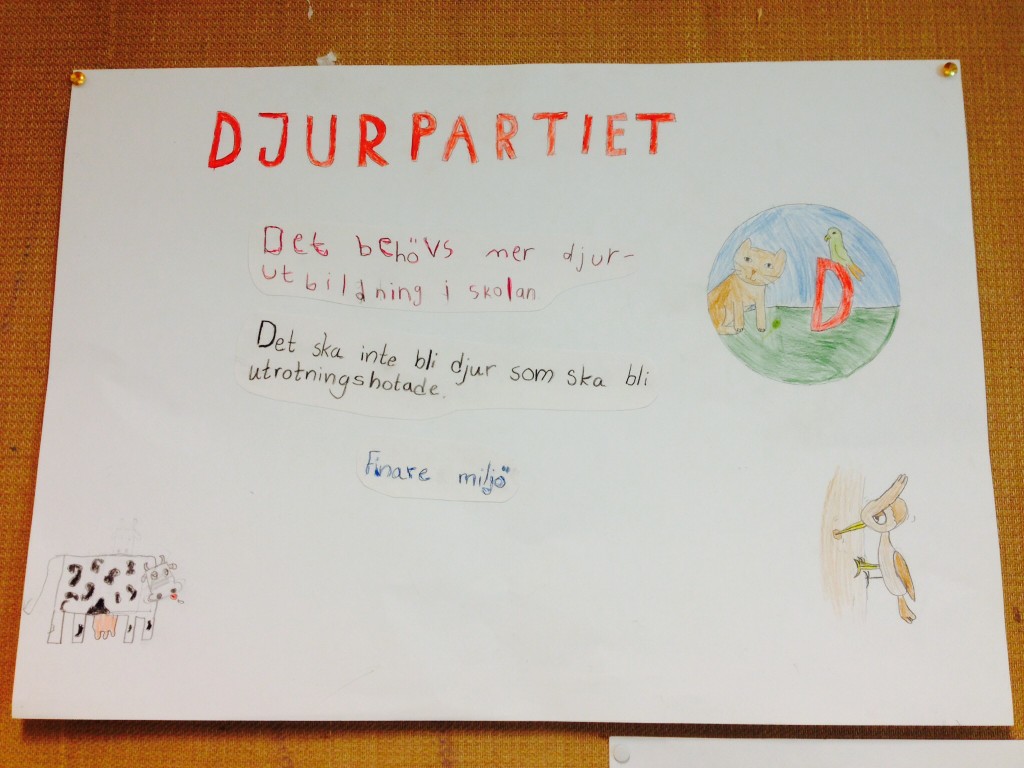 DJURPARTIET
Det behövs mer djur-
utbildning i skolan
Det ska inte bli djur som ska bli
utrotningshotade.
Finare miljö
D